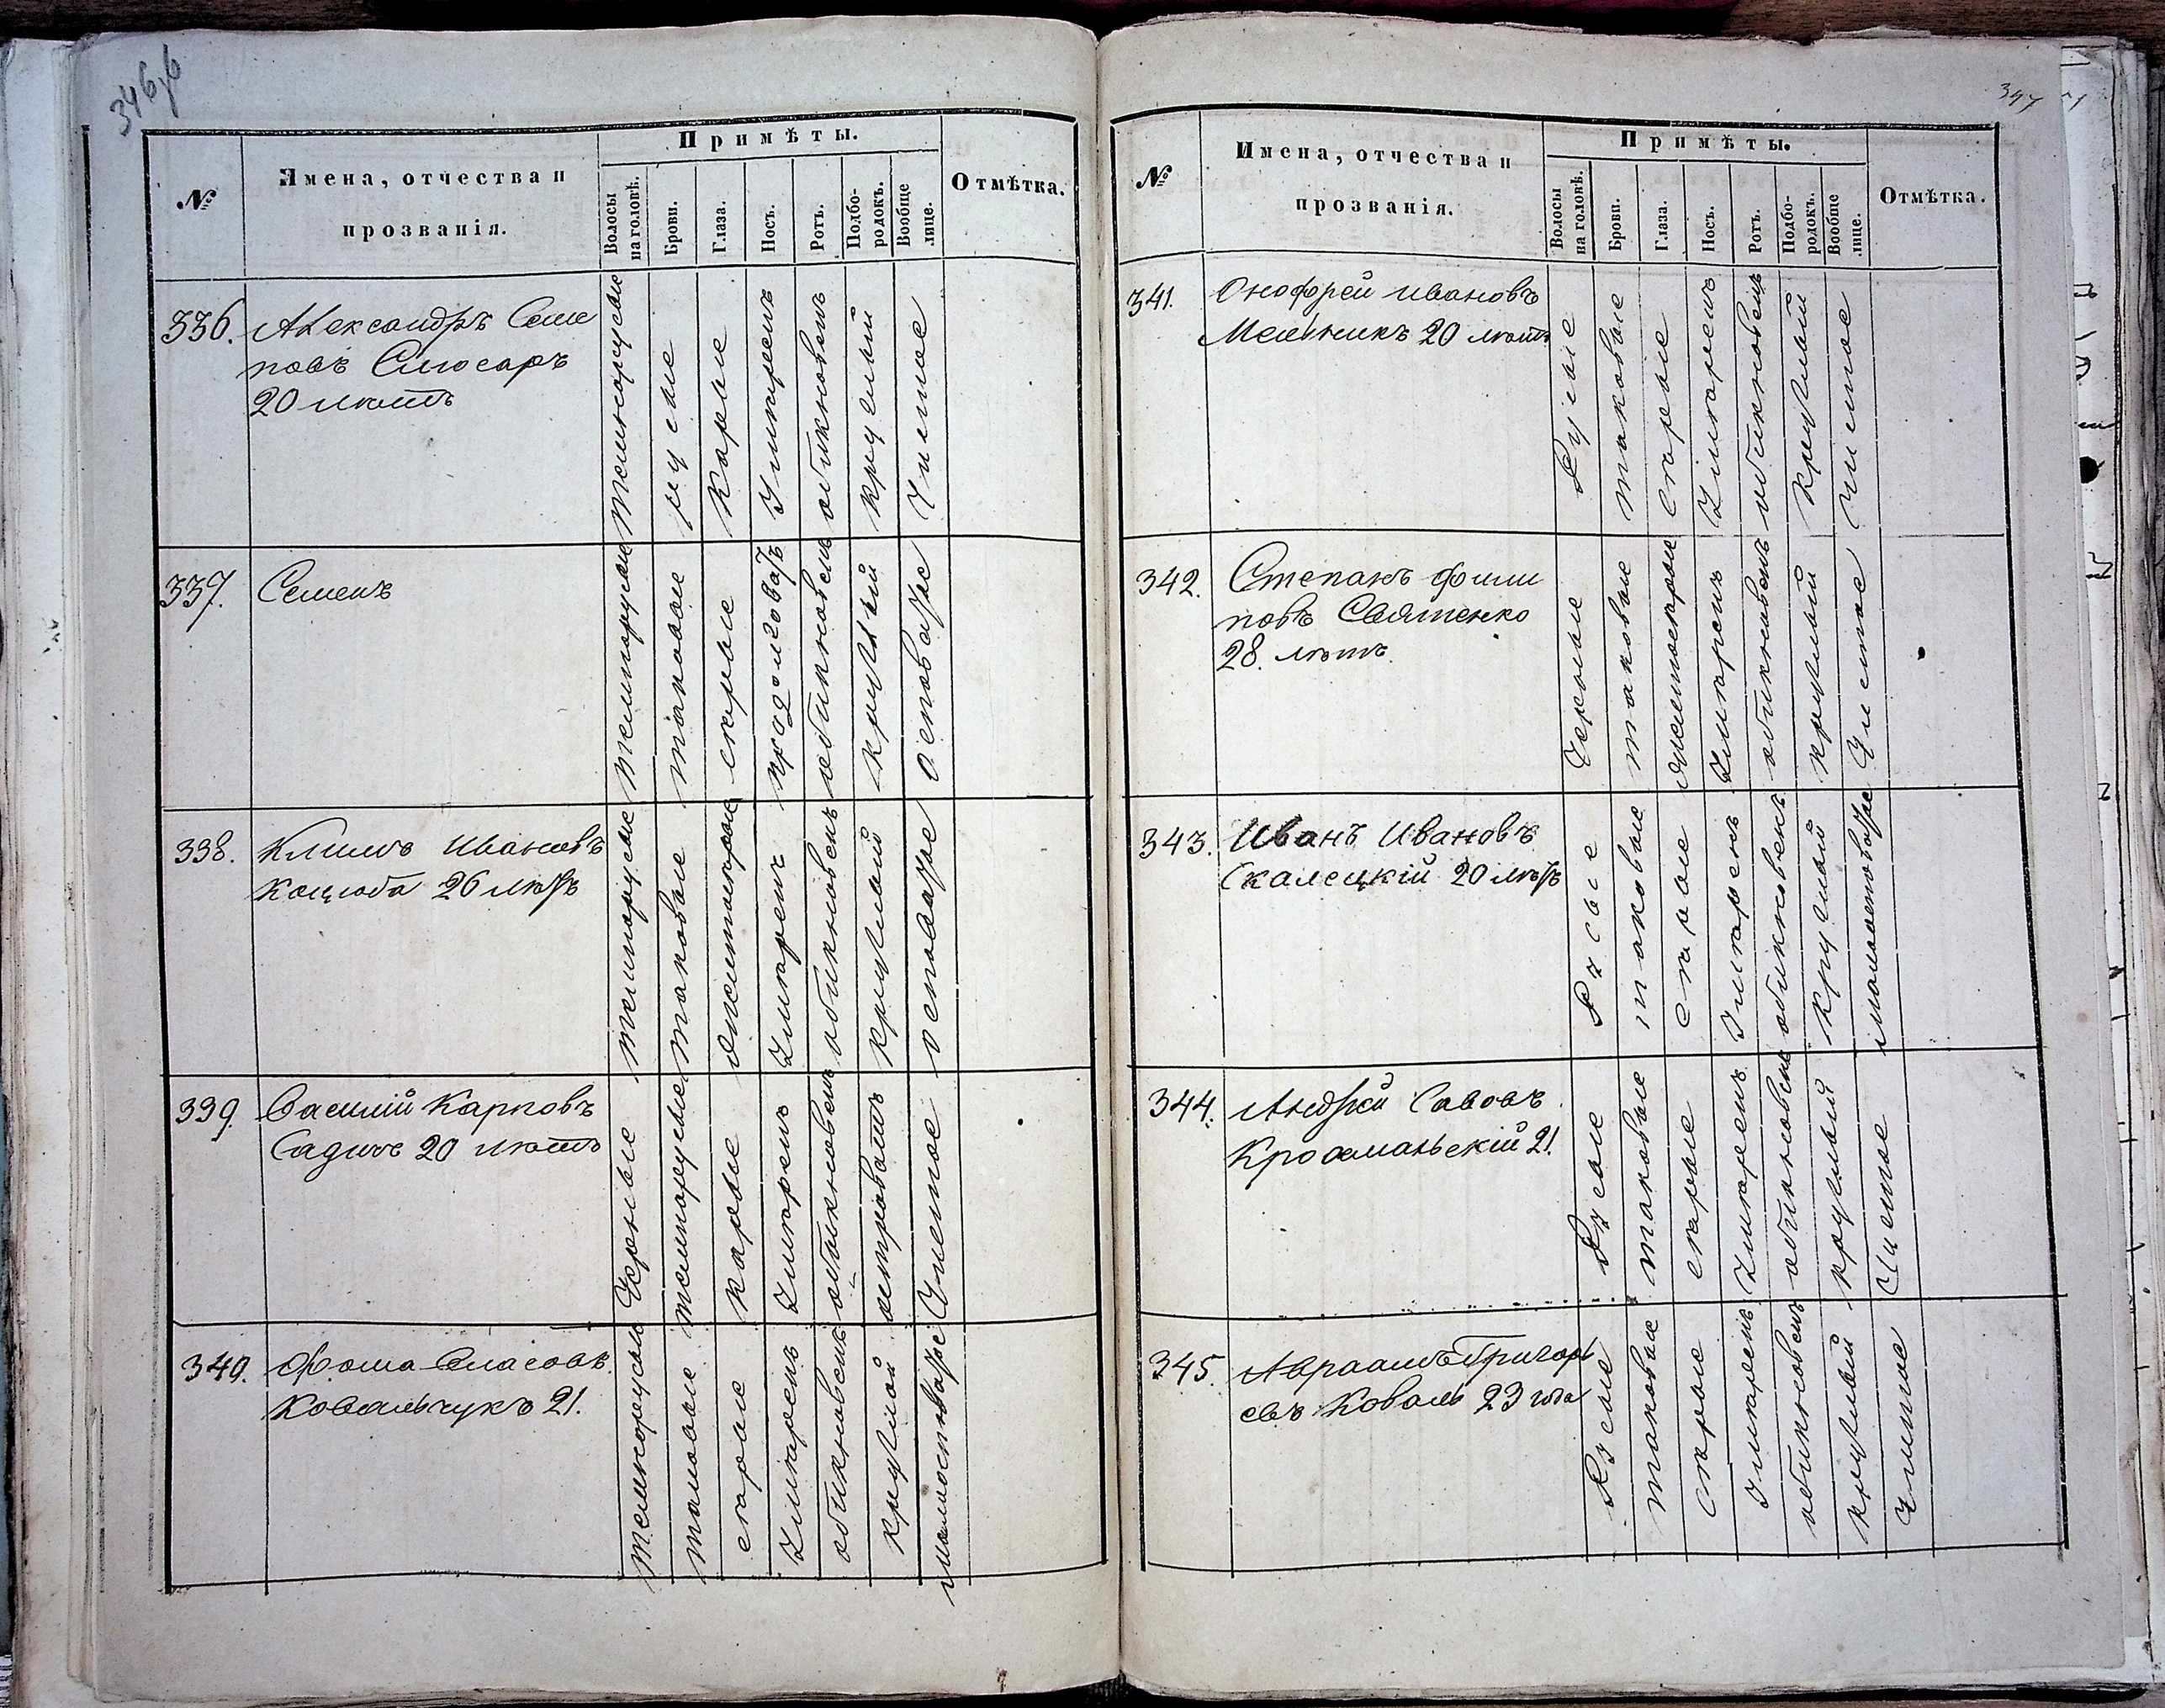 346об
№
Имена, отчества и
прозванія.
Примѣты.
Волосы
на головѣ.
Брови.
Глаза.
Носъ.
Ротъ.
Подбо-
родокъ.
Вообще
лице.
Отмѣтка.
336.
Александръ Семе
новъ Слюсаръ
20 лѣтъ
темнорусые
русые
Карые
Умѣренъ
обикновенъ
круглый
Чистое
337.
Семенъ
темнорусые
таковые
сѣрые
продолговатъ
обикновенъ
круглый
осповатое
338.
Климъ Ивановъ
Коцюба 26 лѣтъ
темнорусые
таковые
Умѣренъ
обикновенъ
круглый
осповатое
339.
Василій Карповъ
20 лѣтъ
Черные
темнорусые
Карые
Умѣренъ
обыкновенъ
островатъ
Чистое
340.
Фома Власовъ
Ковальчукъ 21.
темнорусые
таковые
сѣрые
Умѣренъ
обикновенъ
круглой
малосповатое
347
№
Имена, отчества и
прозванія.
Примѣты.
Волосы
на головѣ.
Брови.
Глаза.
Носъ.
Ротъ.
Подбо-
родокъ.
Вообще
лице.
Отмѣтка.
341.
Онофрей Ивановъ
Мельникъ 20 лѣтъ
Русые
таковые
Сѣрые
Умѣренъ
обикновенъ
круглый
Чистое
342.
Степанъ Фили
повъ Святенко
28. лѣтъ.
Черные
таковые
Умѣренъ
обикновенъ
круглый
Чистое
343.
Иванъ Ивановъ
Скалецкій 20 лѣтъ
Русые
таковые
сѣрые
Умѣренъ
обикновенъ
круглый
малосповатое
344.
Андрей Савовъ
21.
Русые
таковые
сѣрые
Умѣренъ
обикновенъ
круглый
Чистое
345.
Авраамъ Григорь
евъ Коваль 23 года
Русые
таковые
сѣрые
Умѣренъ
обикновенъ
круглый
Чистое